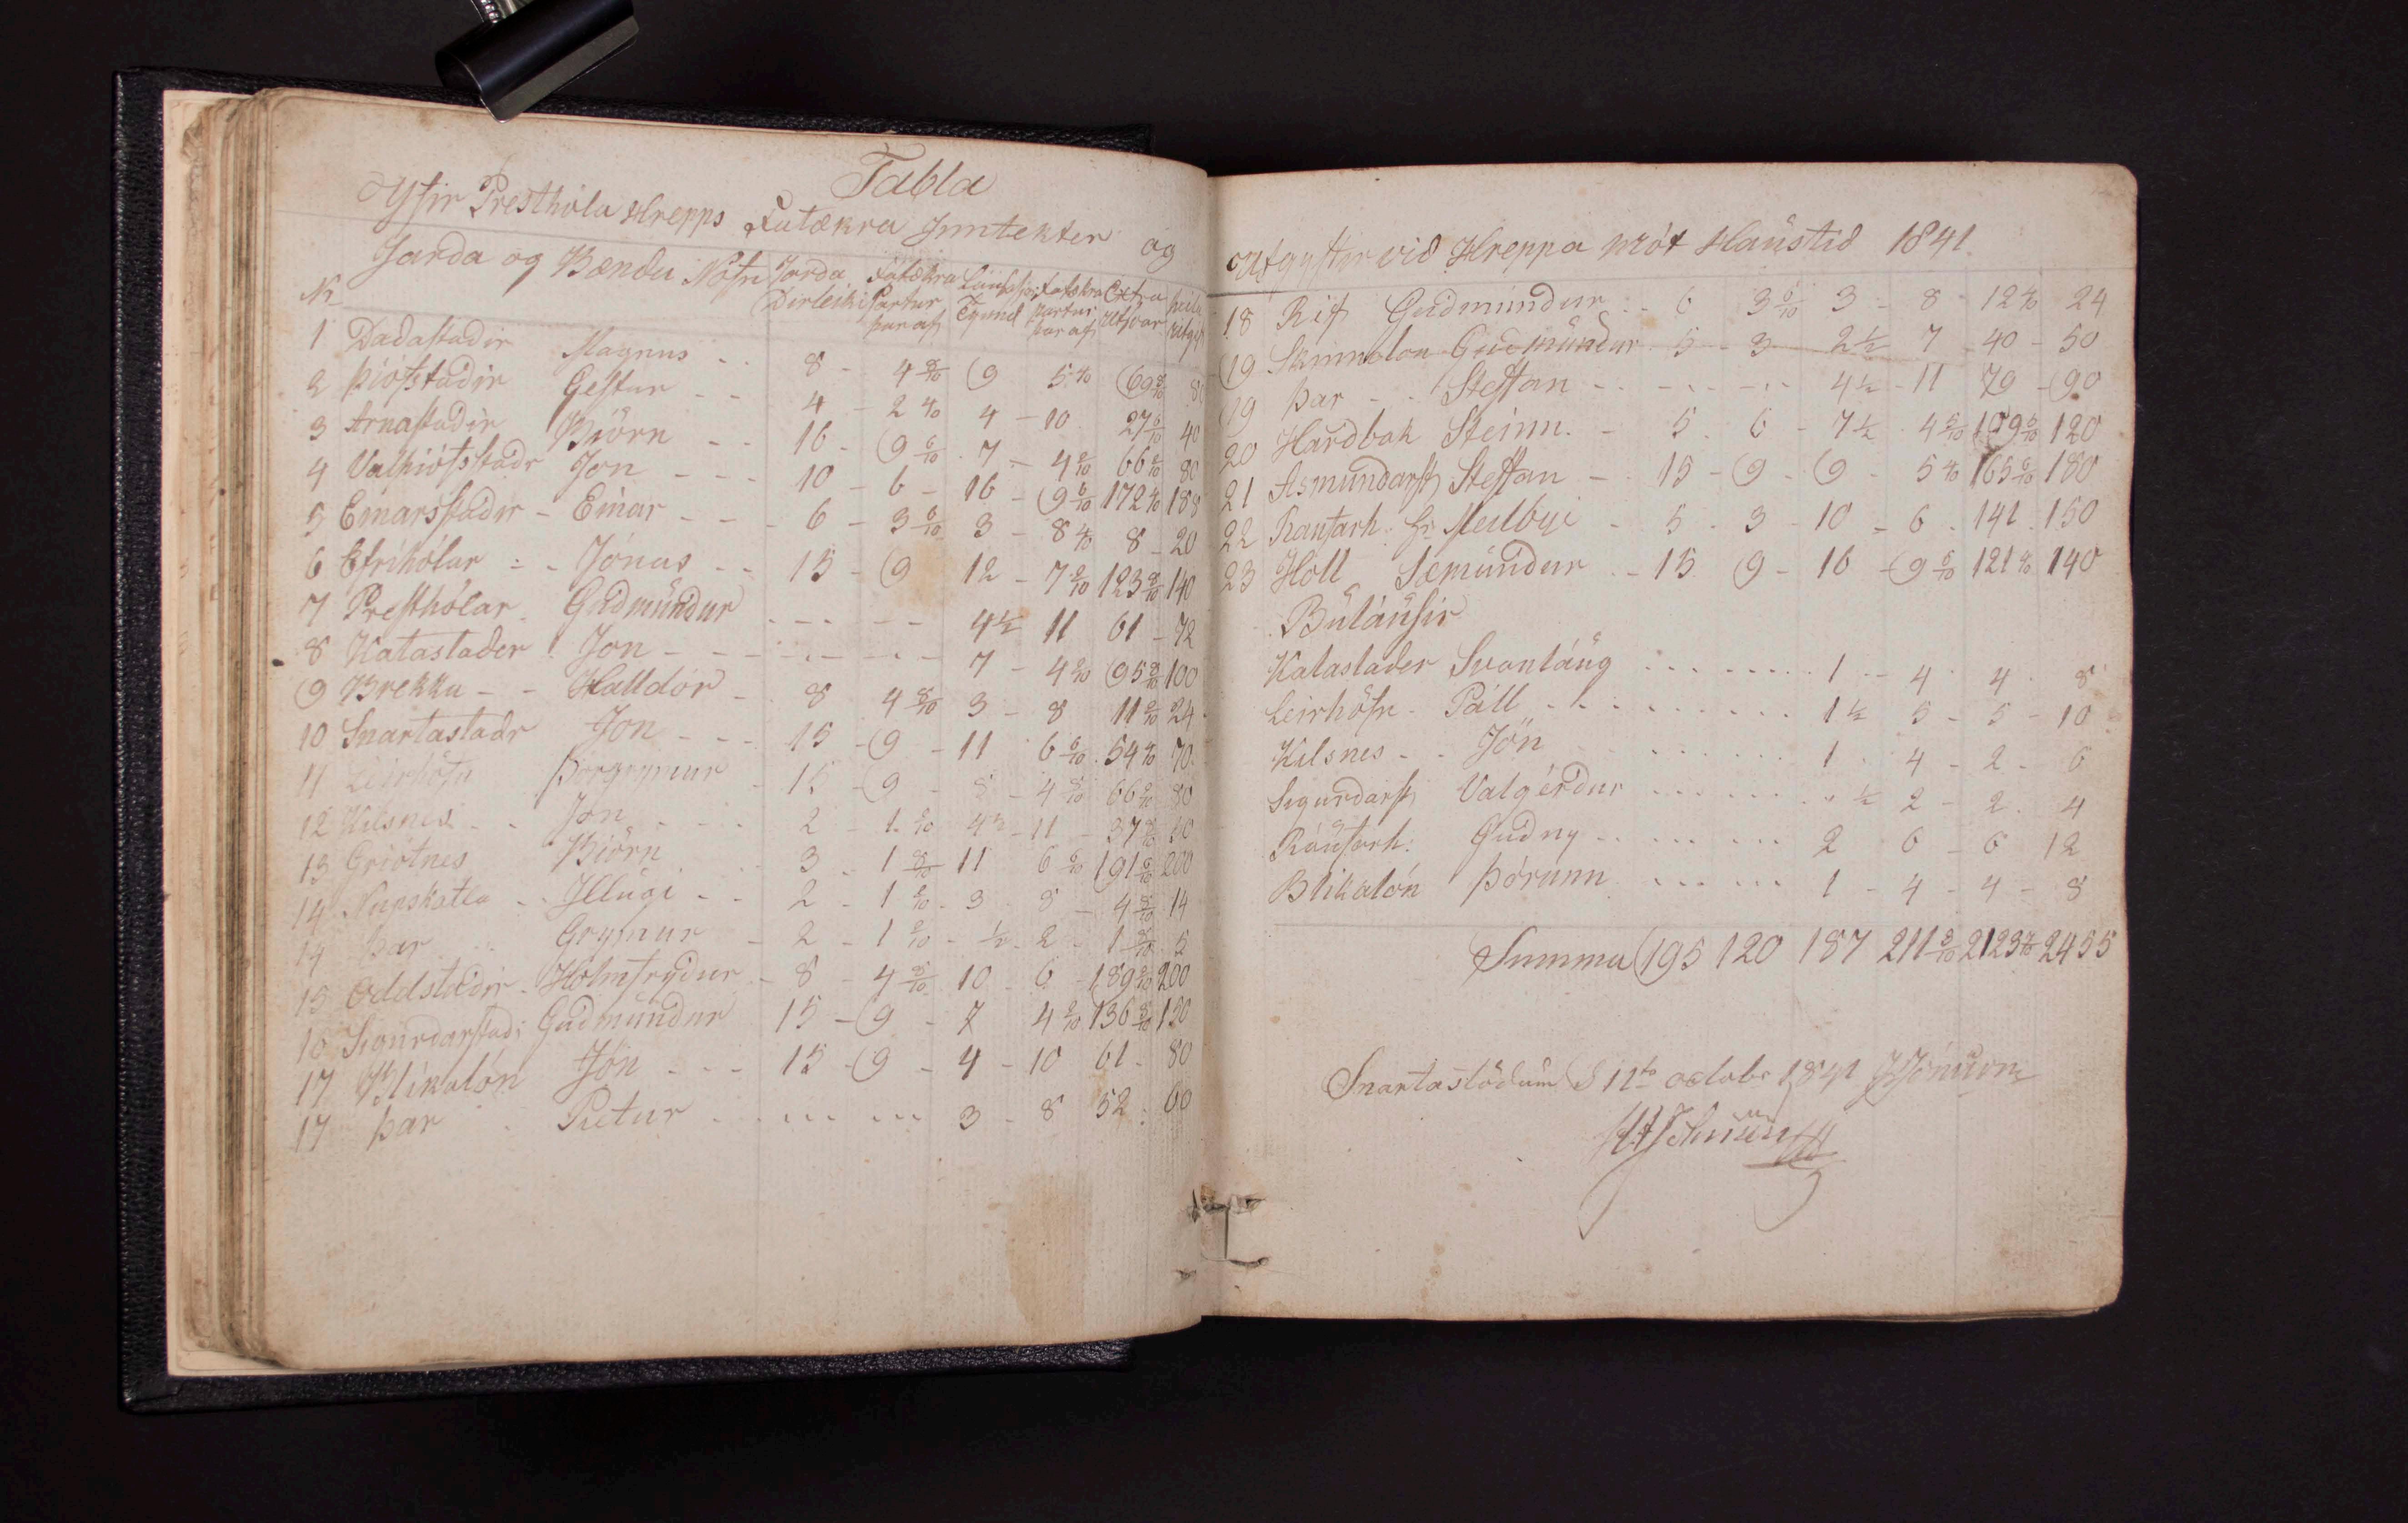 Tabla
Yfir Presthóla Hrepps Fatækra Inntekter og
Jarda og Bænda Nöfn Jarda Dirleiki Fatækra Partur þar af Tyund Fatækra partur þar af Extra Utsvar
Nr
1 Dadastadir Magnus - - 8 - 4 8/10 9 5 4/10 69 8/10 80
2 Þiófsstadir Gestur - - 4 - 2 4/10 4 - 10 27 6/10 40
3 Arnastadir Biörn - - 16 - 9 6/10 7 - 4 2/10 66 2/10 80
4 Valþiófsstadr Jon - - - 10 - 6 - 16 - 9 6/10 172 4/10 188
5 Einarsstadir - Einar - - - 6 - 3 6/10 3 - 8 4/10 8 - 20
6 Efrihólar - Jónas - - 15 - 9 12 - 7 2/10 123 8/10 140
7 Presthólar Gudmundur - - - - - 4 1/2 11 61 - 72
8 Katastader Jon - - - - - - - 7 - 4 2/10 95 8/10 100
9 Brekka - - Halldór - 8 4 8/10 3 - 8 11 2/10 24
10 Snartastadr Jon - - - 15 - 9 - 11 6 6/10 54 4/10 70
11 Leirhöfn Þorgrymur - 15 - 9 - 8 - 4 8/10 66 2/10 80
12 Kilsnes - - Jon - - - 2 - 1 2/10 4 1/2 - 11 - 37 8/10 50
13 Griótnes Biörn 3 - 1 8/10 11 6 6/10 191 6/10 200
14 Nupskatla - - Illugi - - 2 - 1 2/10 - 3 8 - 4 8/10 14
14 þar Grymur - 2 - 1 2/10 - 1/2 - 2 - 1 8/10 5
15 Oddstadir - Holmfrydur - 8 - 4 8/10 10 - 6 - 189 2/10 200
16 Sigurdarstadi Gudmundur 15 - 9 - 7 4 2/10 136 8/10 150
17 Blikalón Jón - - - 15 - 9 - 4 - 10 61 - 80
17 þar Pietur - - - - - - - 3 - 8 52 - 60
Utgyftir vid Hreppa mót Haustid 1841
18 Rif Gudmundur - - 6 3 6/10 3 - 8 - 12 4/10 24
19 Skinnalon Gudmundur 5 - 3 2 1/2 7 - 40 - 50
19 þar - - Steffan - - - - - - 4 1/2 - 11 79 - 90
20 Hardbak Steinn - 5 - 6 - 7 1/2 4 5/10 109 5/10 120
21 Asmundarst Steffan - 15 - 9 - 9 - 5 4/10 165 6/10 180
22 Raufarh: Hr Meilbye - 5 - 3 - 10 - 6 - 141 - 150
23 Hóll Sæmundur - - 15 9 - 16 - 9 6/10 121 4/10 140
Búlausir
Katastader Svanlaug - - - - - 1 - - 4 - 4 - 8
Leirhöfn - Páll - - - - - - 1 1/2 5 - 5 - 10
Kilsnes - - Jón - - - - - 1 - 4 - 2 - 6
Sigurdarst Valgérdur - - - - - 1/2 2 - 2 - 4
Raufarh: Gudny - - - - - 2 6 - 6 12
Blikalón Þórunn - - - - - 1 - 4 - 4 - 8
Summa 195 120 187 211 3/10 2123 7/10 2455
Snartastödum d 11to octobr 1841 JJónsson